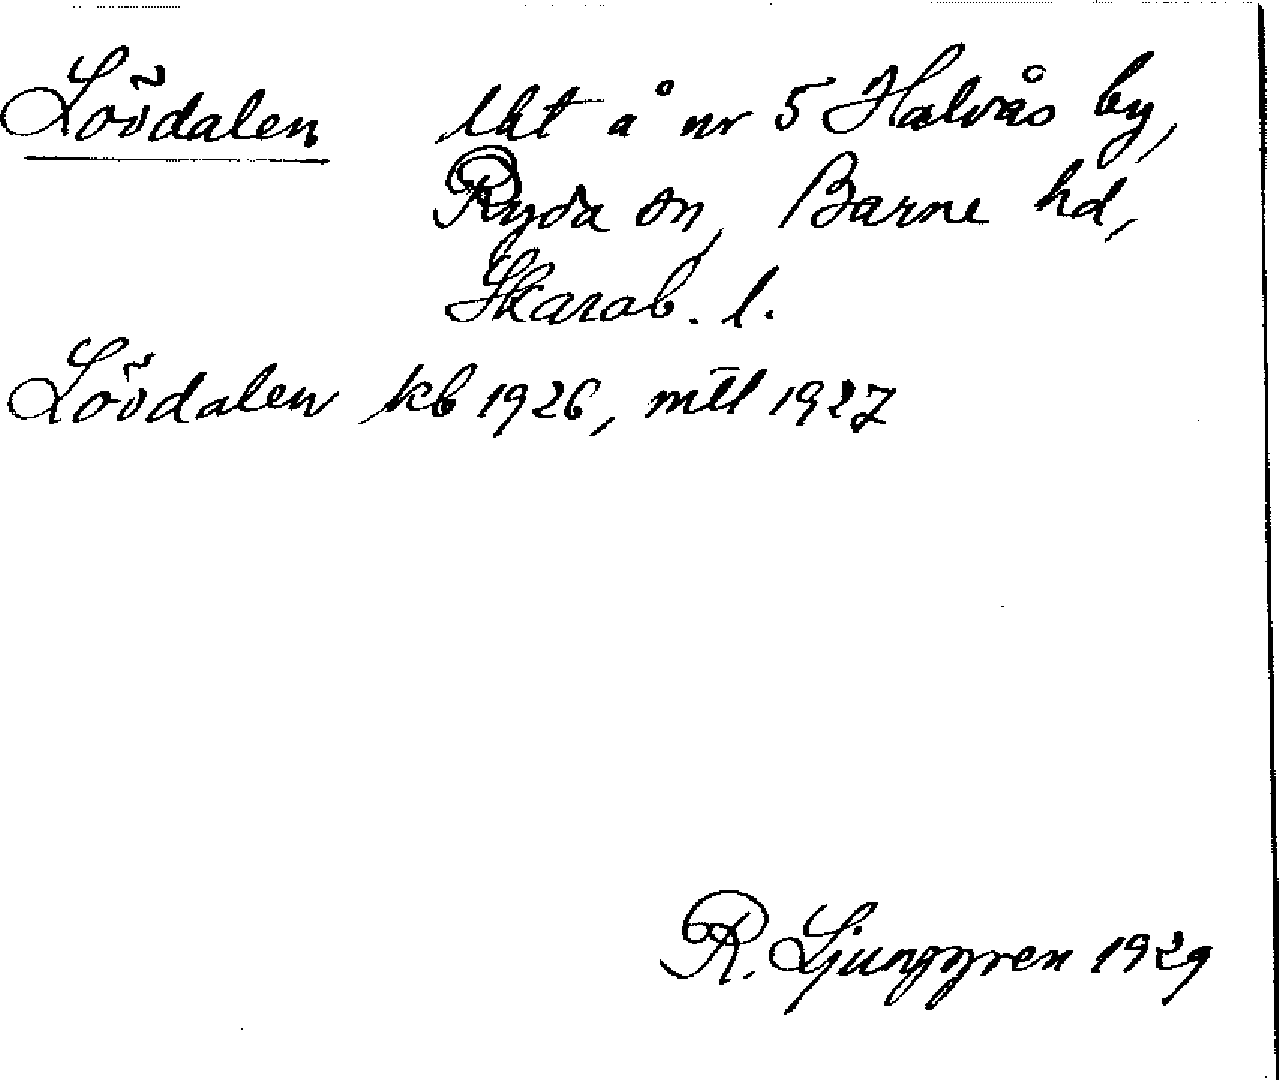 Lövdalen lht å nr 5 Halvås by,
Ryda sn, Barne hd,
Skarab. l.
Lövdalen kb 1926, mtl 1927
R. Ljunggren 1929